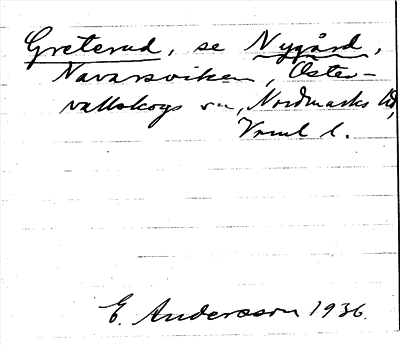 Greterud, se Nygård,
Navarsviken, Öster-
vallskogs sn, Nordmarks hd,
Vrml l.
E. Andersson 1936.